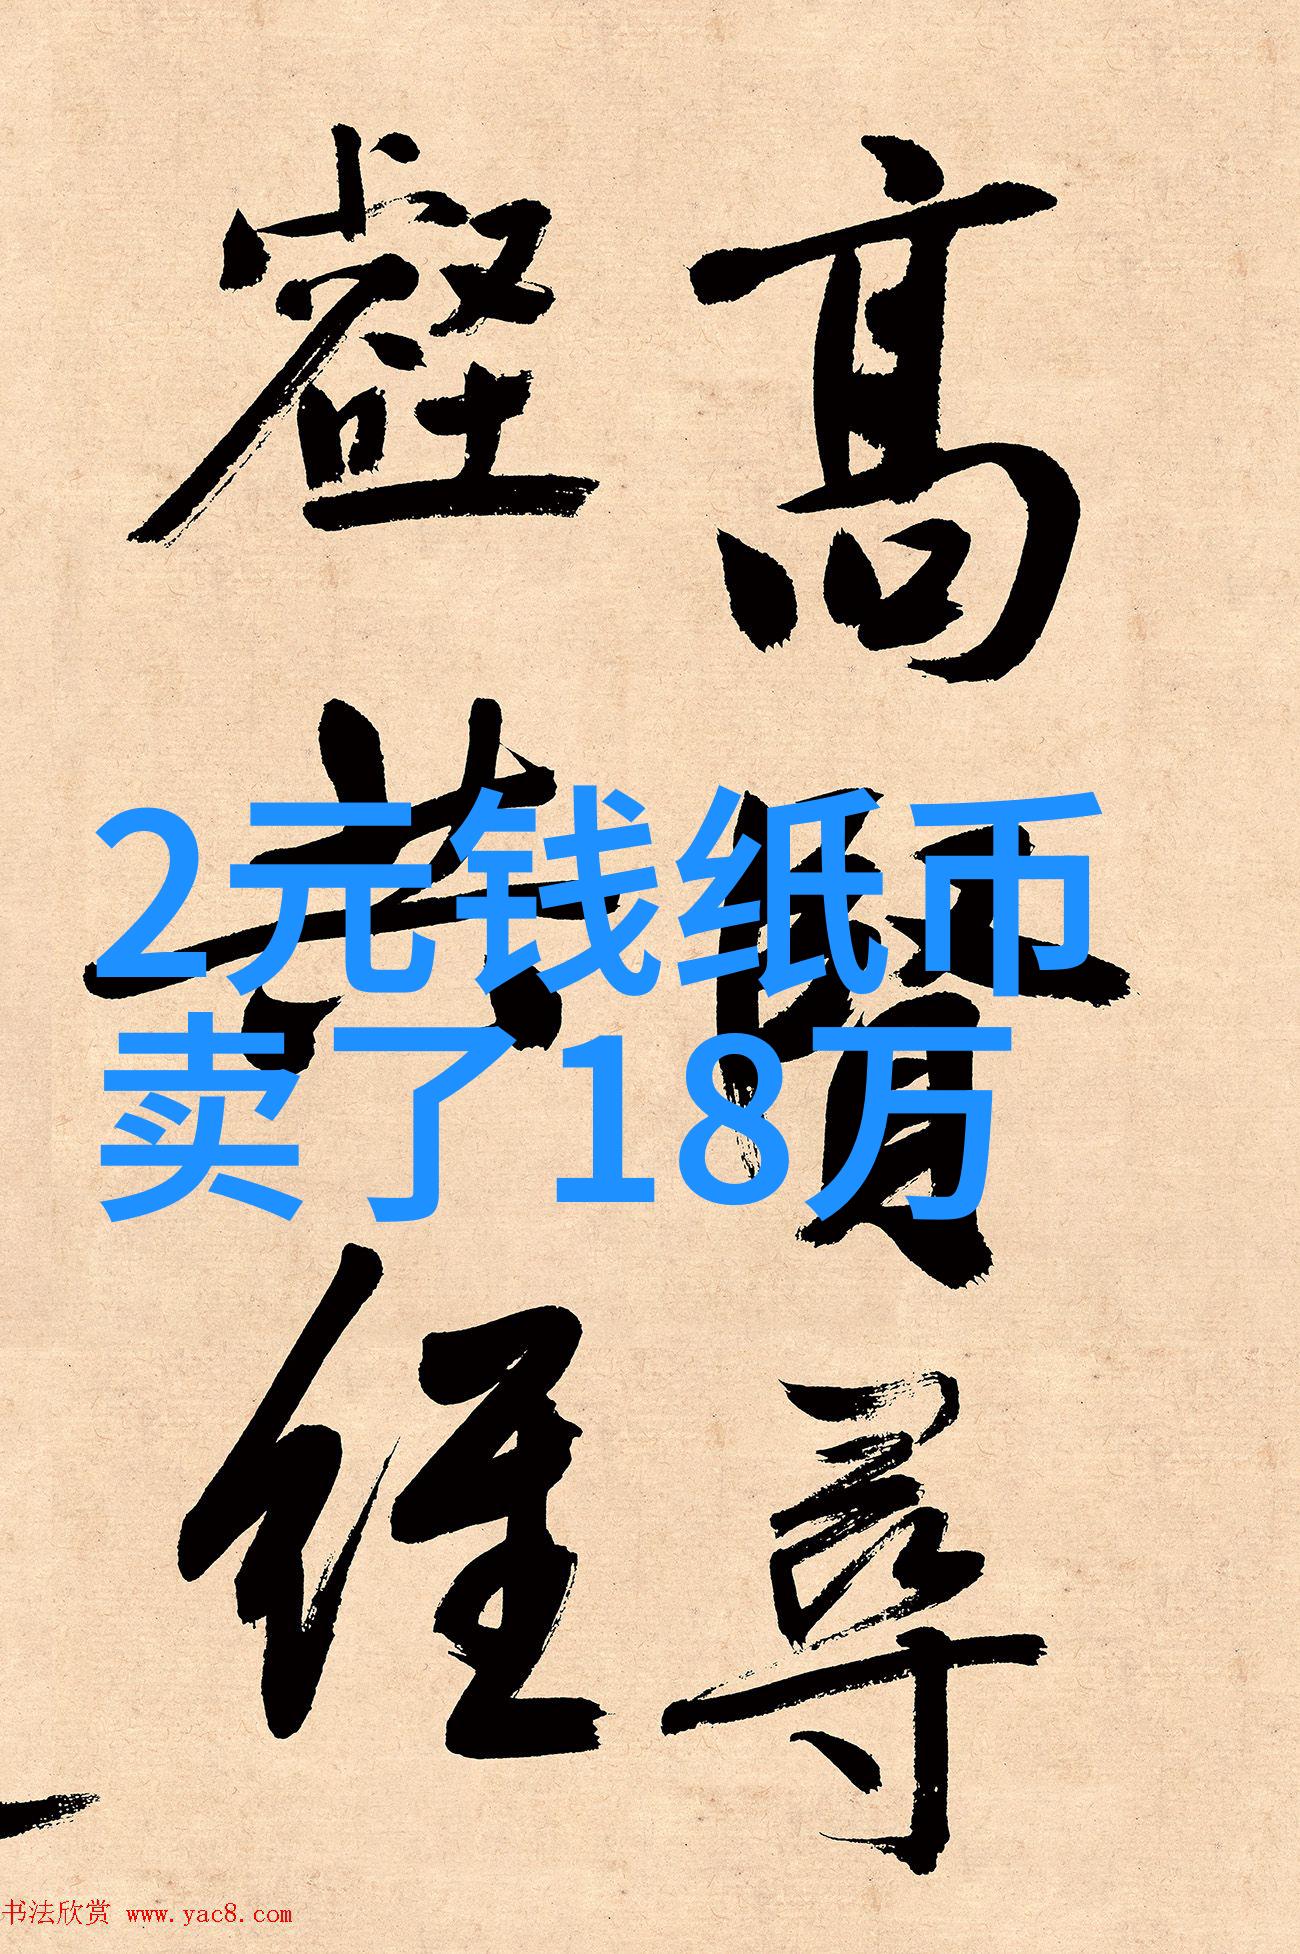 高賢尋
壑共經
2元钱纸币
卖了18万
书法欣赏 www.yac8.com